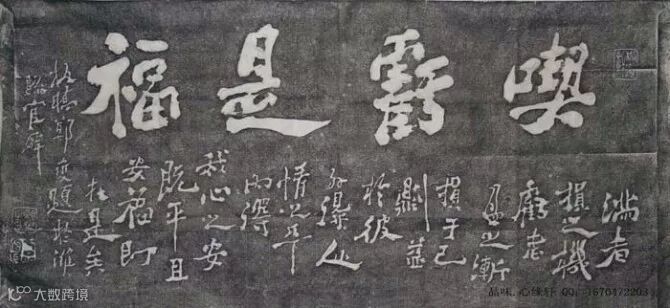 喫虧是福
滿者
損之機
虧者
盈之漸
損于己
則益
於彼
外得人
情之平
內得
我心之安
既平且
安福即
在是矣
板橋鄭燮題於濰
縣官廨
大数跨境